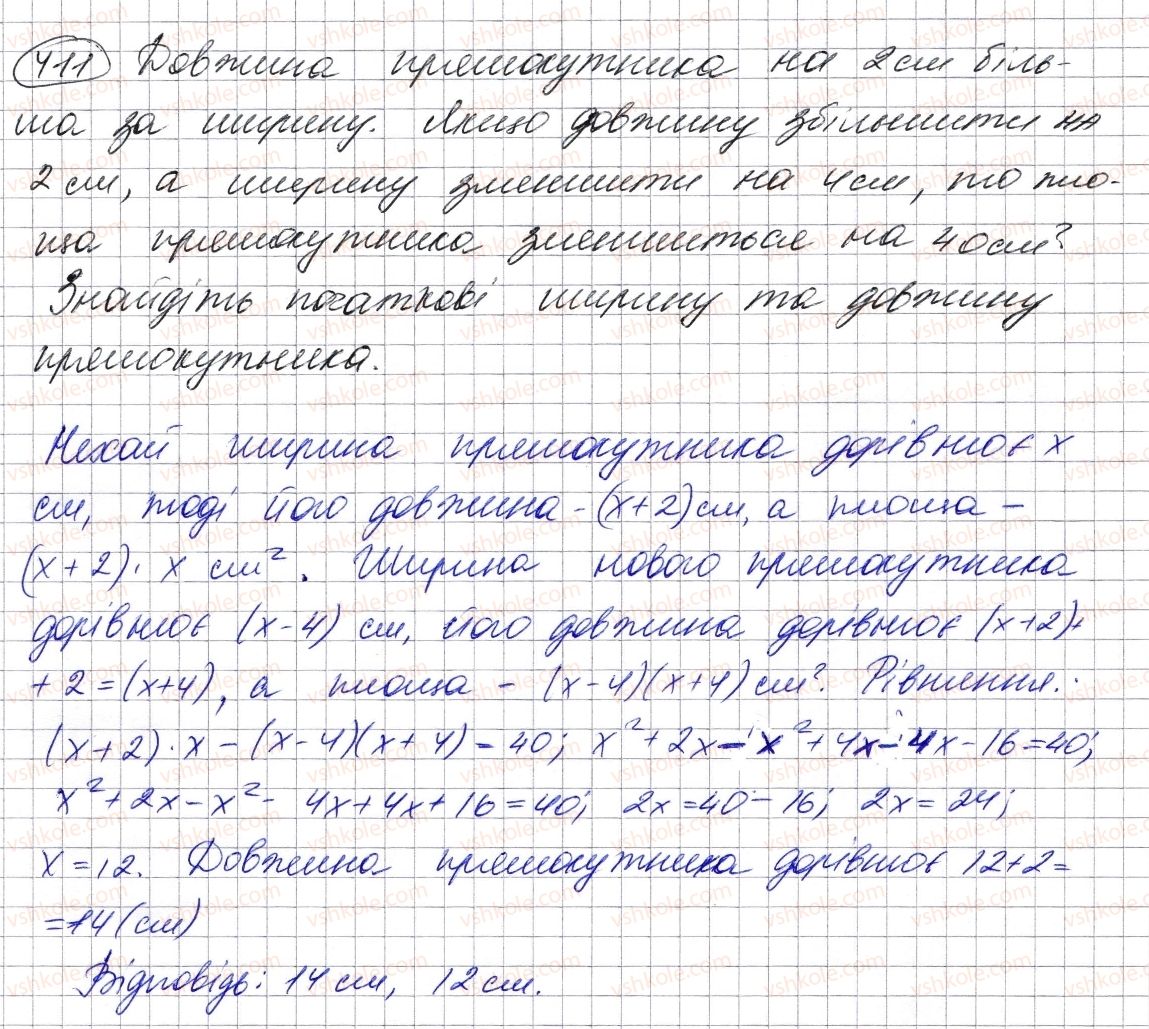 411 Довжина прямокутника на 2 см біль-
ша за ширину. Якщо довжину збільшити на
2 см, а ширину зменшити на 4 см, то пло-
ща прямокутника зменшиться на 40 см².
Знайдіть початкові ширину та довжину
прямокутника.
Нехай ширина прямокутника дорівнює x
см, тоді його довжина - (x+2) см, а площа -
(x+2)·x см². Ширина нового прямокутника
дорівнює (x-4) см, його довжина дорівнює (x+2)+
+2=(x+4), а площа - (x-4)(x+4) см². Рівняння:
(x+2)·x-(x-4)(x+4)=40; x²+2x-x²+4x-4x-16=40;
x²+2x-x²-4x+4x+16=40; 2x=40-16; 2x=24;
x=12. Довжина прямокутника дорівнює 12+2=
=14 (см)
Відповідь: 14 см, 12 см.